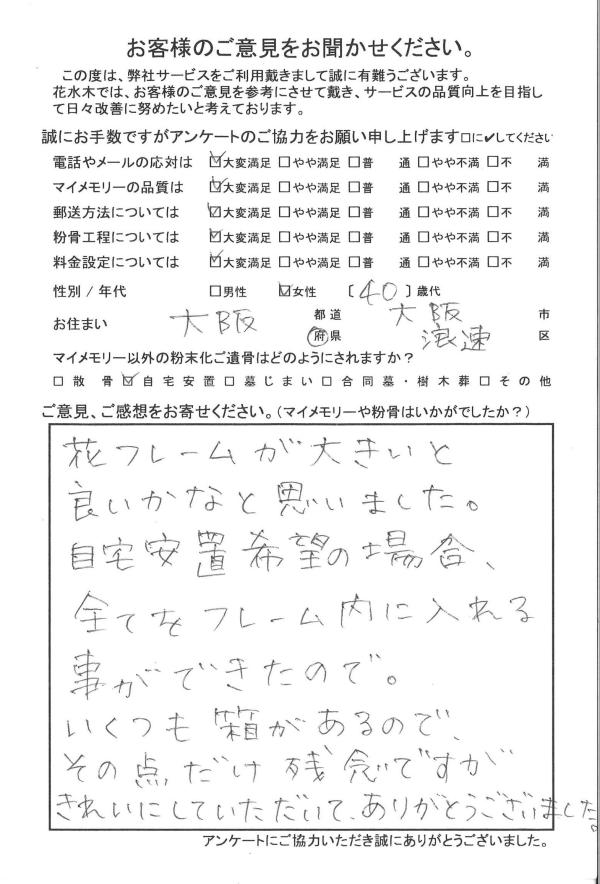 お客様のご意見をお聞かせください。
この度は、弊社サービスをご利用戴きまして誠に有難うございます。
花水木では、お客様のご意見を参考にさせて戴き、サービスの品質向上を目指し
て日々改善に努めたいと考えております。
誠にお手数ですがアンケートのご協力をお願い申し上げます□に✔してください
電話やメールの応対は ☑大変満足 □やや満足 □普 通 □やや不満 □不 満
マイメモリーの品質は ☑大変満足 □やや満足 □普 通 □やや不満 □不 満
郵送方法については ☑大変満足 □やや満足 □普 通 □やや不満 □不 満
粉骨工程については ☑大変満足 □やや満足 □普 通 □やや不満 □不 満
料金設定については ☑大変満足 □やや満足 □普 通 □やや不満 □不 満
性別 / 年代 □男性 ☑女性 〔 40 〕歳代
お住まい 大阪 都 道 府 県 大阪 市 浪速 区
マイメモリー以外の粉末化ご遺骨はどのようにされますか？
□散 骨 ☑自宅安置 □墓じまい □合同墓・樹木葬 □その他
ご意見、ご感想をお寄せください。(マイメモリーや粉骨はいかがでしたか？)
花フレームが大きいと
良いかなと思いました。
自宅安置希望の場合、
全てをフレーム内に入れる
事ができたので。
いくつも箱があるので、
その点だけ残念ですが
きれいにしていただいて、ありがとうございました。
アンケートにご協力いただき誠にありがとうございました。